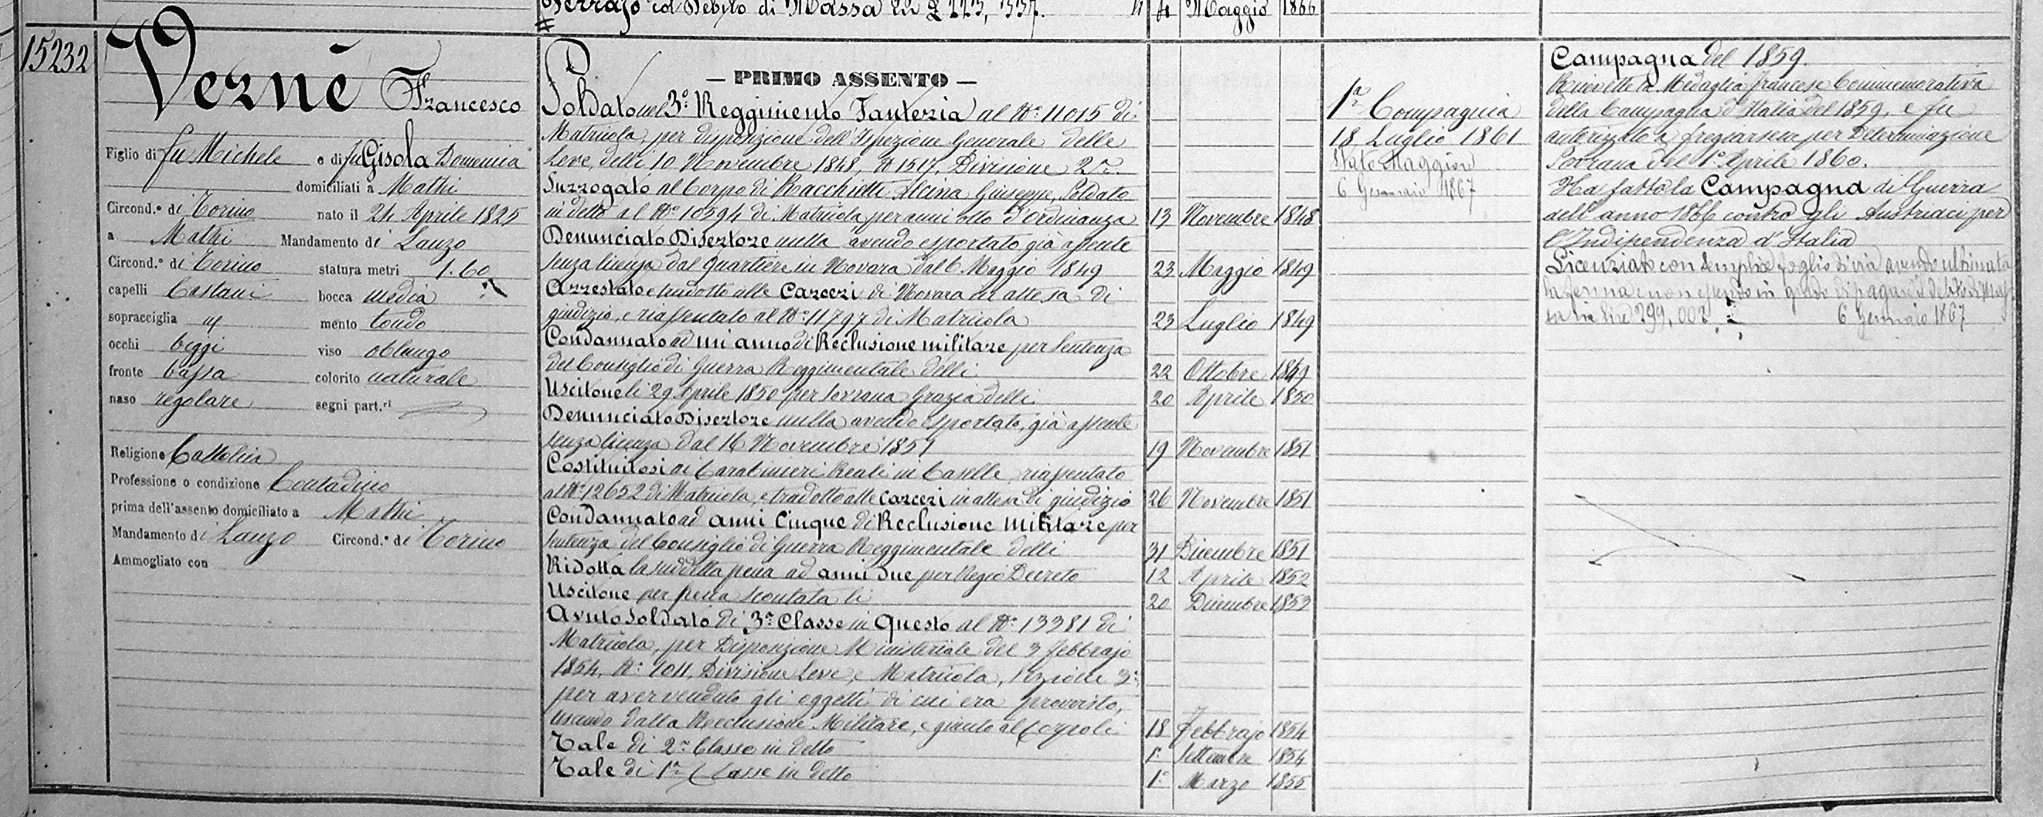 Perrajo col Debito di Massa in £ 223, 337. li 4 Maggio 1866
15232
Vernè Francesco
Figlio di fu Michele e di fu Gisola Domenica
domiciliati a Mathi
Circond.° di Torino nato il 24 Aprile 1825
a Mathi Mandamento di Lanzo
Circond.° di Torino statura metri 1.60
capelli Castani bocca media
sopracciglia id mento tondo
occhi biggi viso oblungo
fronte bassa colorito naturale
naso regolare segni part.ri
Religione Cattolica
Professione o condizione Contadino
prima dell'assento domiciliato a Mathi
Mandamento di Lanzo Circond.° di Torino
Ammogliato con
— PRIMO ASSENTO —
Soldato nel 3° Reggimento Fanteria al N° 11015 di
Matricola, per disposizione dell'Ispezione Generale delle
Leve, delli 10 Novembre 1848, N 1517, Divisione 2ª
Surrogato al Corpo di Bracchietti Alcina Giuseppe, Soldato
in detto al N° 10594 di Matricola per anni otto d'ordinanza 13 Novembre 1848
Denunciato Disertore nulla avendo esportato, già assente
senza licenza dal Quartiere in Novara dal 6 Maggio 1849 23 Maggio 1849
Arrestato e tradotto alle Carceri di Novara in attesa di
giudizio, e riassentato al N° 11797 di Matricola 23 Luglio 1849
Condannato ad un anno di Reclusione militare per sentenza
del Consiglio di Guerra Reggimentale delli 22 Ottobre 1849
Uscitone li 29 Aprile 1850 per Sovrana Grazia delli 20 Aprile 1850
Denunciato Disertore nulla avendo esportato, già assente
senza licenza dal 16 Novembre 1851 19 Novembre 1851
Costituitosi ai Carabinieri Reali in Caselle, riassentato
al N° 12652 di Matricola, e tradotto alle carceri in attesa di giudizio 26 Novembre 1851
Condannato ad anni Cinque di Reclusione Militare per
sentenza del Consiglio di Guerra Reggimentale delli 31 Dicembre 1851
Ridotta la suddetta pena ad anni due per Regio Decreto 12 Aprile 1852
Uscitone per pena scontata li 20 Dicembre 1853
Avuto Soldato di 3ª Classe in Questo al N° 13381 di
Matricola, per Disposizione Ministeriale del 3 febbrajo
1854, N° 1011, Divisione Leve, e Matricola, Sezione 3ª,
per aver venduto gli oggetti di cui era provvisto,
uscendo dalla Reclusione Militare, e giunto al Corpo li 18 Febbrajo 1854
Tale di 2ª Classe in detto 1° Settembre 1854
Tale di 1ª Classe in detto 1° Marzo 1855
1ª Compagnia
18 Luglio 1861
Stato Maggiore
6 Gennaio 1867
Campagna del 1859.
Ricevette la Medaglia francese Commemorativa
della Campagna d'Italia del 1859, e fu
autorizzato a fregiarsene per Determinazione
Sovrana del 1° Aprile 1860.
Ha fatto la Campagna di Guerra
dell'anno 1866 contro gli Austriaci per
l'Indipendenza d'Italia
Licenziato con semplice foglio di via avendo ultimata
la ferma e non essendo in grado di pagare il debito di massa
in lire 299,002. 6 Gennaio 1867